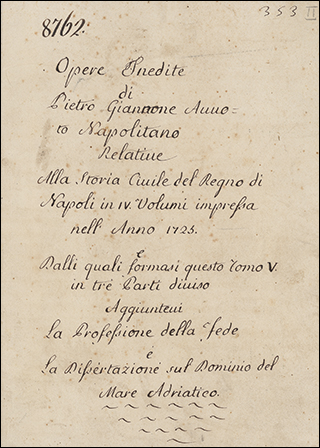 8762.
353 II
Opere Inedite
di
Pietro Giannone Auuo=
to Napolitano
Relatiue
Alla Storia Ciuile del Regno di
Napoli in IV. Volumi impressa
nell' Anno 1723.
E
Dalli quali formasi questo Tomo V.
in tre Parti diuiso
Aggiunteui
La Professione della Fede
e
La Dissertazione sul Dominio del
Mare Adriatico.